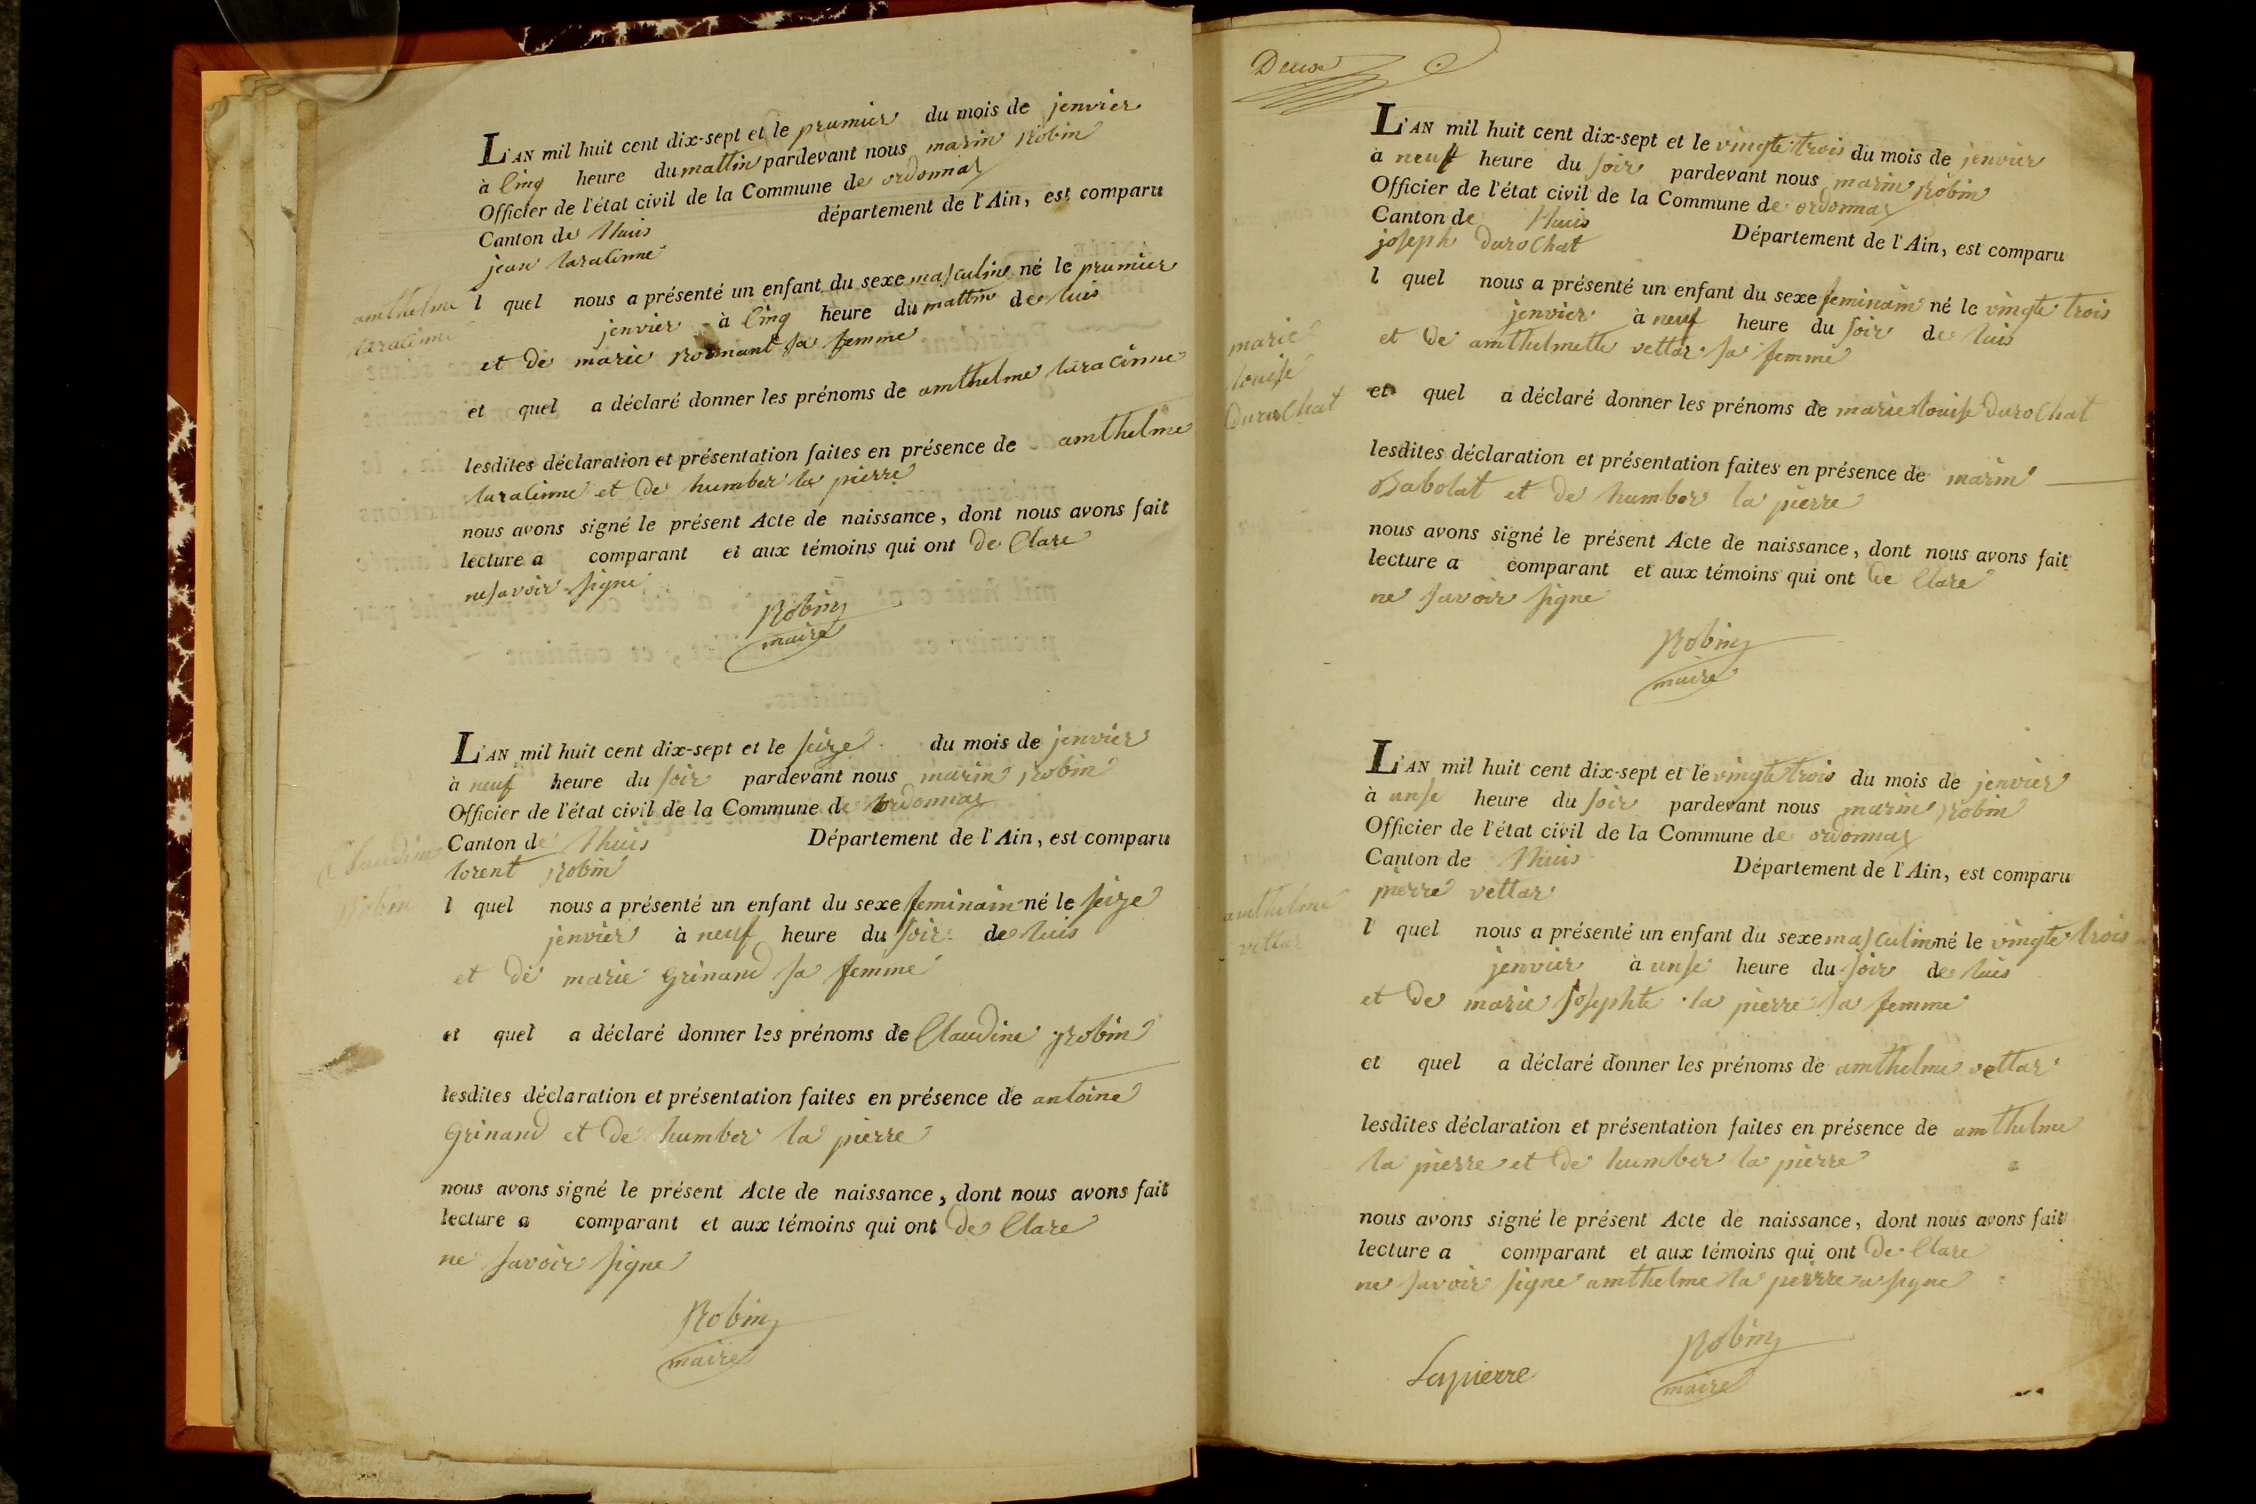 L'AN mil huit cent dix-sept et le prumier du mois de jenvier
à Cinq heure du mattin pardevant nous marin Robin
Officier de l'état civil de la Commune de ordonnas
Canton de Lhuis département de l'Ain, est comparu
jean taracinne
l quel nous a présenté un enfant du sexe masculin né le prumier
jenvier à Cinq heure du mattin de luis
et de marie sa femme
et quel a déclaré donner les prénoms de amthelme taracinne
lesdites déclaration et présentation faites en présence de amthelme
taracinne et de humber la pierre
nous avons signé le présent Acte de naissance, dont nous avons fait
lecture a comparant et aux témoins qui ont de Clare
ne savoir signe
Robin
maire
amthelme
taracinne
L'AN mil huit cent dix-sept et le seize du mois de jenvier
à neuf heure du soir pardevant nous marin Robin
Officier de l'état civil de la Commune de ordonnas
Canton de Lhuis Département de l'Ain, est comparu
lorent Robin
l quel nous a présenté un enfant du sexe feminain né le seize
jenvier à neuf heure du soir de luis
et de marie Grinand sa femme
et quel a déclaré donner les prénoms de Claudine Robin
lesdites déclaration et présentation faites en présence de antoine
Grinand et de humber la pierre
nous avons signé le présent Acte de naissance, dont nous avons fait
lecture a comparant et aux témoins qui ont de Clare
ne savoir signe
Robin
maire
Claudine
Robin
Deux
L'AN mil huit cent dix-sept et le vingte trois du mois de jenvier
à neuf heure du soir pardevant nous marin Robin
Officier de l'état civil de la Commune de ordonnas
Canton de Lhuis Département de l'Ain, est comparu
joseph duroChat
l quel nous a présenté un enfant du sexe feminain né le vingte trois
jenvier à neuf heure du soir de luis
et de amthelmette vettar sa femme
et quel a déclaré donner les prénoms de marie louise duroChat
lesdites déclaration et présentation faites en présence de marin
Babolat et de humber la pierre
nous avons signé le présent Acte de naissance, dont nous avons fait
lecture a comparant et aux témoins qui ont de Clare
ne savoir signe
Robin
maire
marie
louise
duroChat
L'AN mil huit cent dix-sept et le vingte trois du mois de jenvier
à unse heure du soir pardevant nous marin Robin
Officier de l'état civil de la Commune de ordonnas
Canton de Lhuis Département de l'Ain, est comparu
pierre vettar
l quel nous a présenté un enfant du sexe masculin né le vingte trois
jenvier à unse heure du soir de luis
et de marie josephte la pierre sa femme
et quel a déclaré donner les prénoms de amthelme vettar
lesdites déclaration et présentation faites en présence de amthelme
la pierre et de humber la pierre
nous avons signé le présent Acte de naissance, dont nous avons fait
lecture a comparant et aux témoins qui ont de Clare
ne savoir signe amthelme la pierre a signe
Lapierre Robin
maire
amthelme
vettar